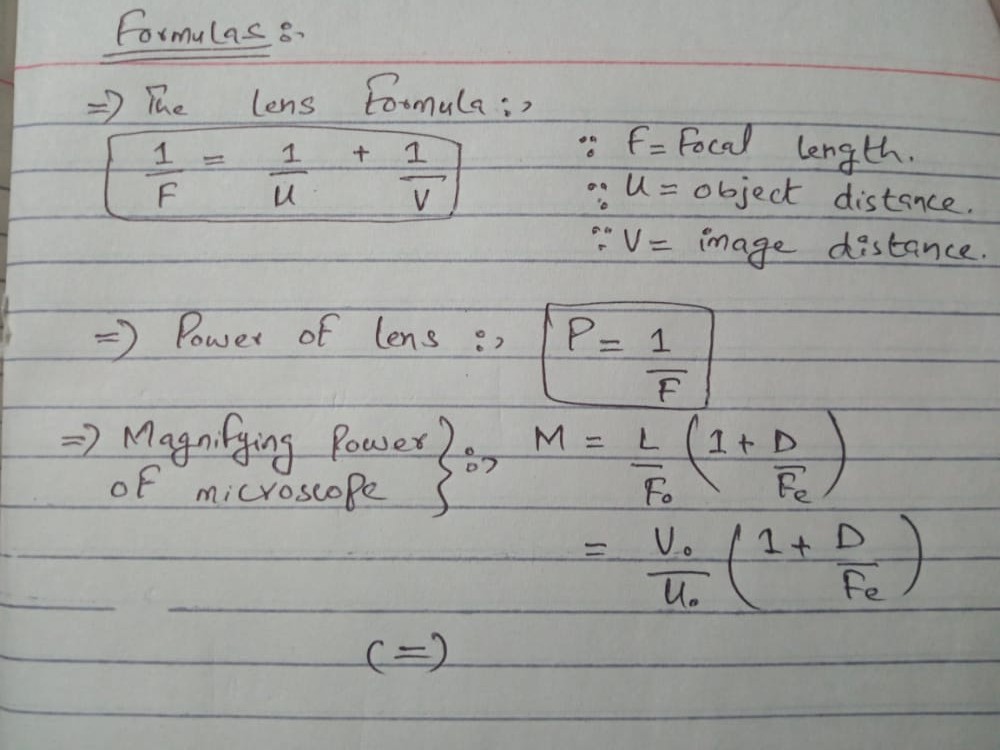 Formulas :-
=> The lens Formula :-
1/F = 1/u + 1/v
∵ F = Focal length.
∵ u = object distance.
∵ v = image distance.
=> Power of lens :- P = 1/F
=> Magnifying Power of microscope } :- M = L/Fo (1 + D/Fe)
= Vo/Uo (1 + D/Fe)
(=)